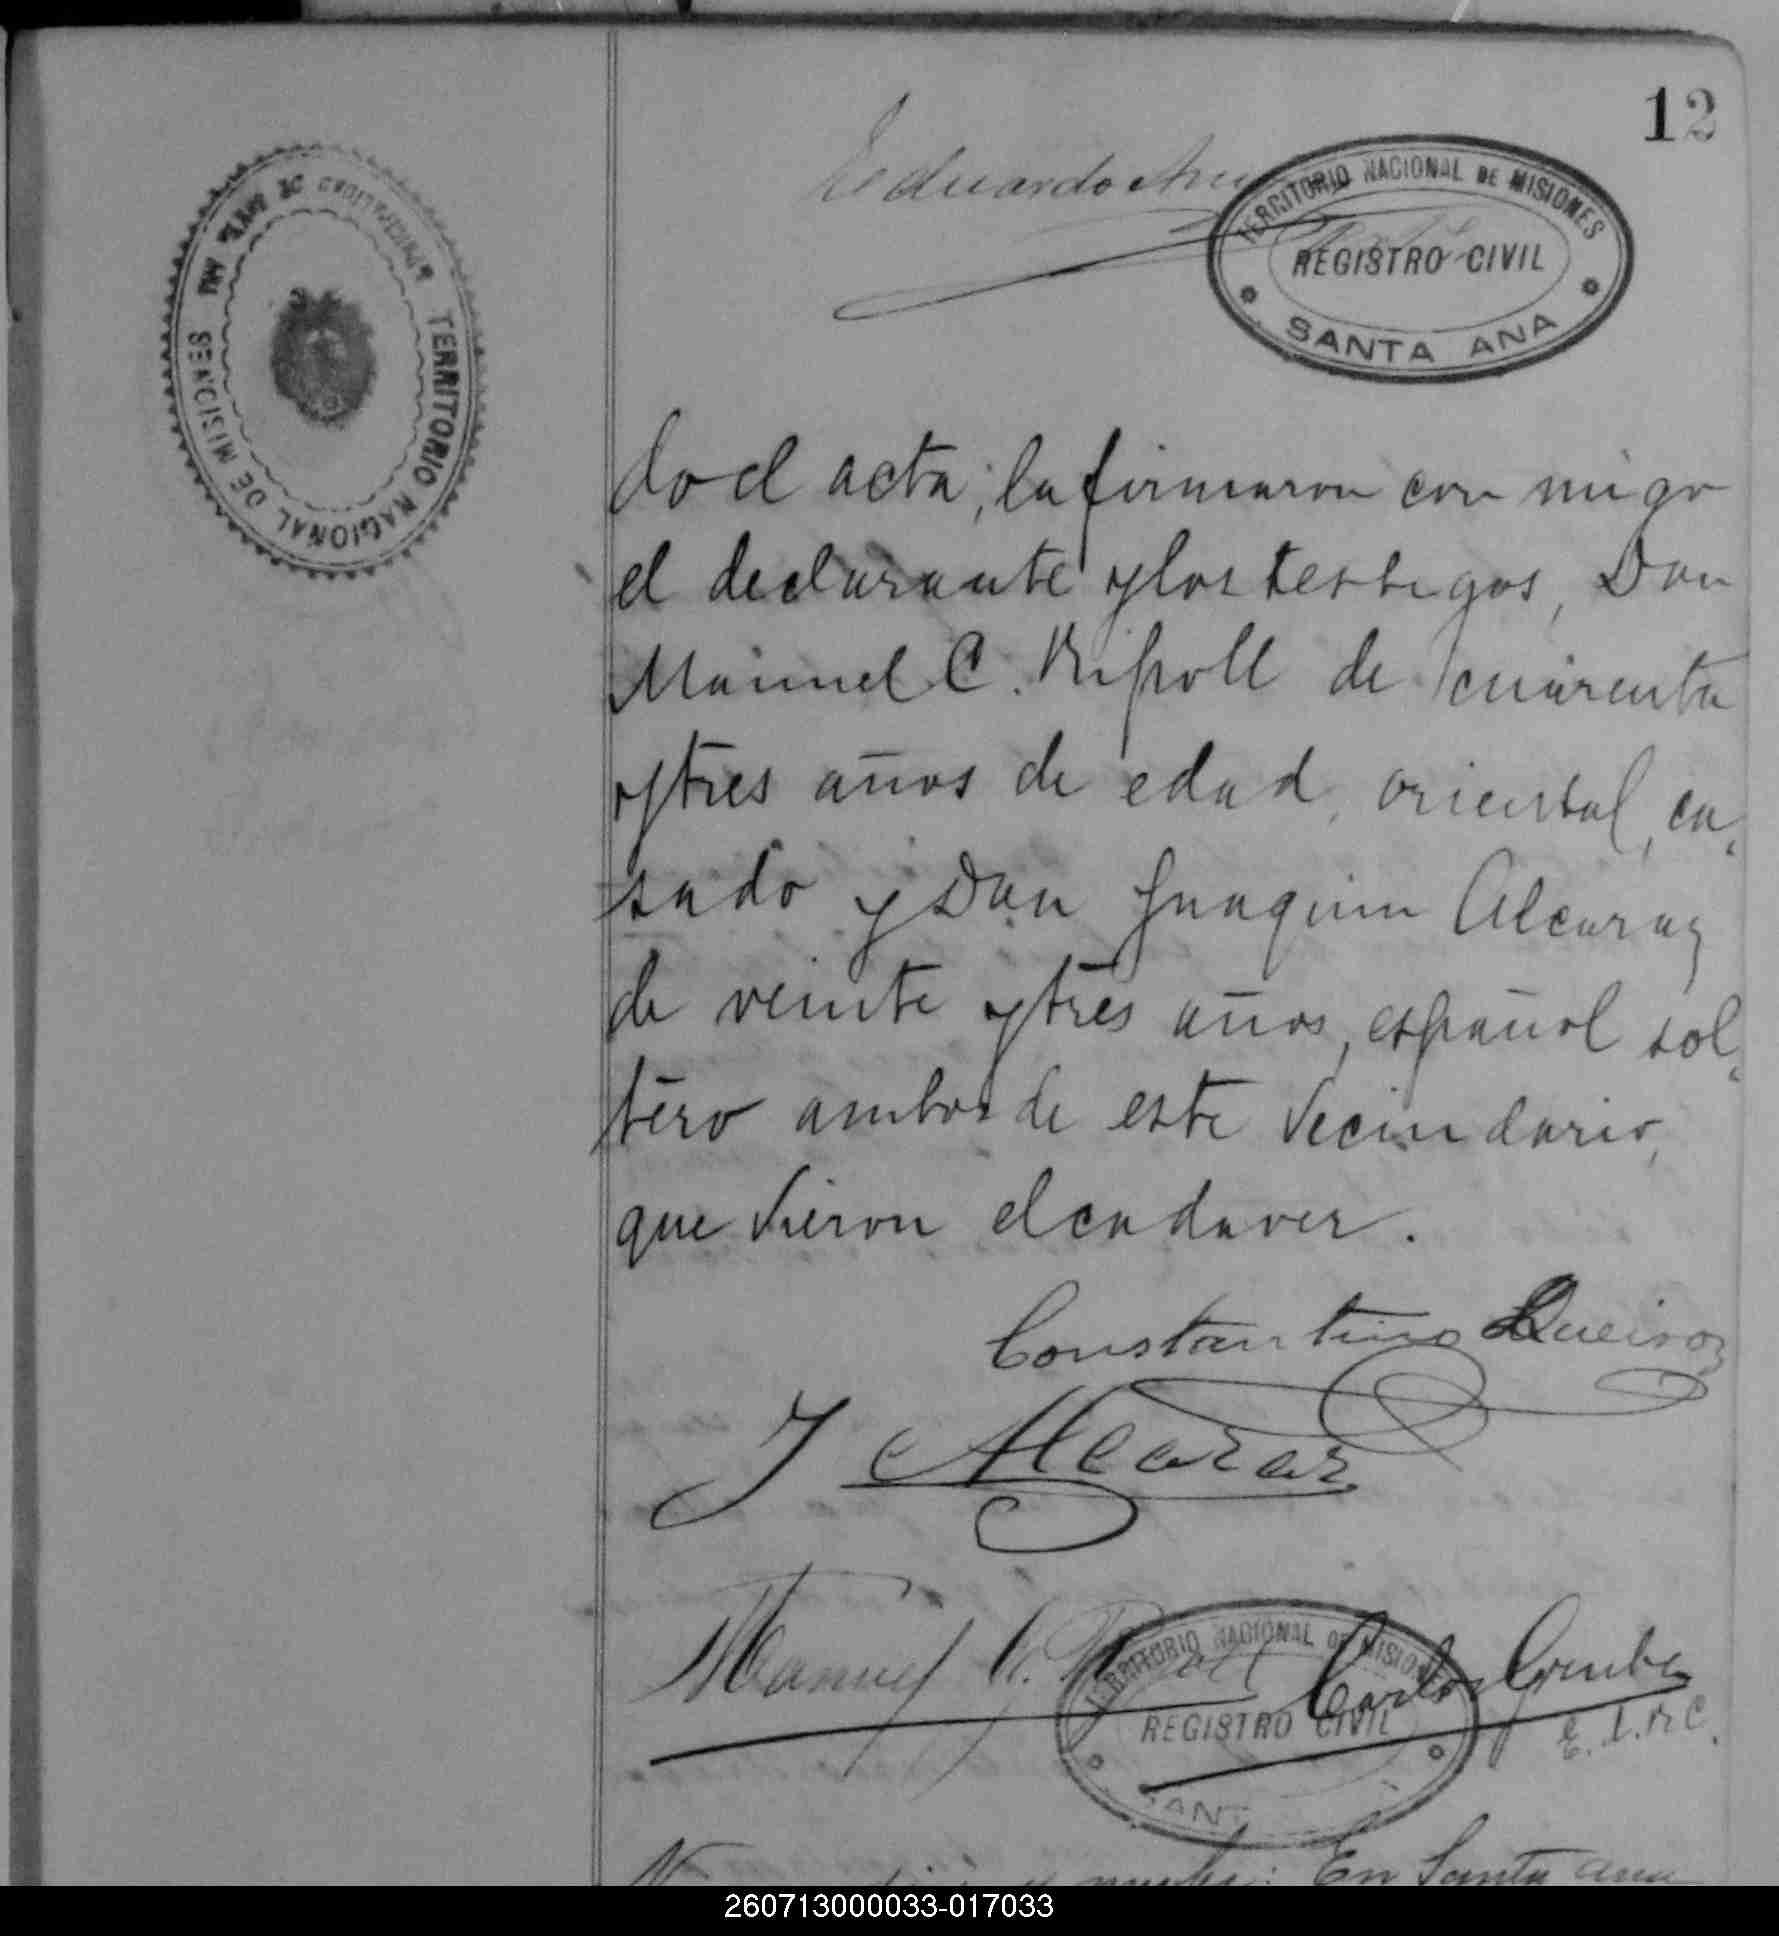 12
Eduardo
TERRITORIO NACIONAL DE MISIONES
REGISTRO CIVIL
SANTA ANA
TERRITORIO NACIONAL DE MISIONES
do el acta, la firmaron con migo
el declarante y los testigos, Don
Manuel C. Ripoll de cuarenta
y tres años de edad, oriental, ca-
sado y Don Juaquin Alcaraz
de veinte y tres años, español sol-
tero ambos de este vecindario,
que vieron el cadaver.
Constantino Queiroz
J Alcaraz
Manuel C. Ripoll Carlos
E. d. R. C.
TERRITORIO NACIONAL DE MISIONES
REGISTRO CIVIL
SANT
En Santa Ana
260713000033-017033